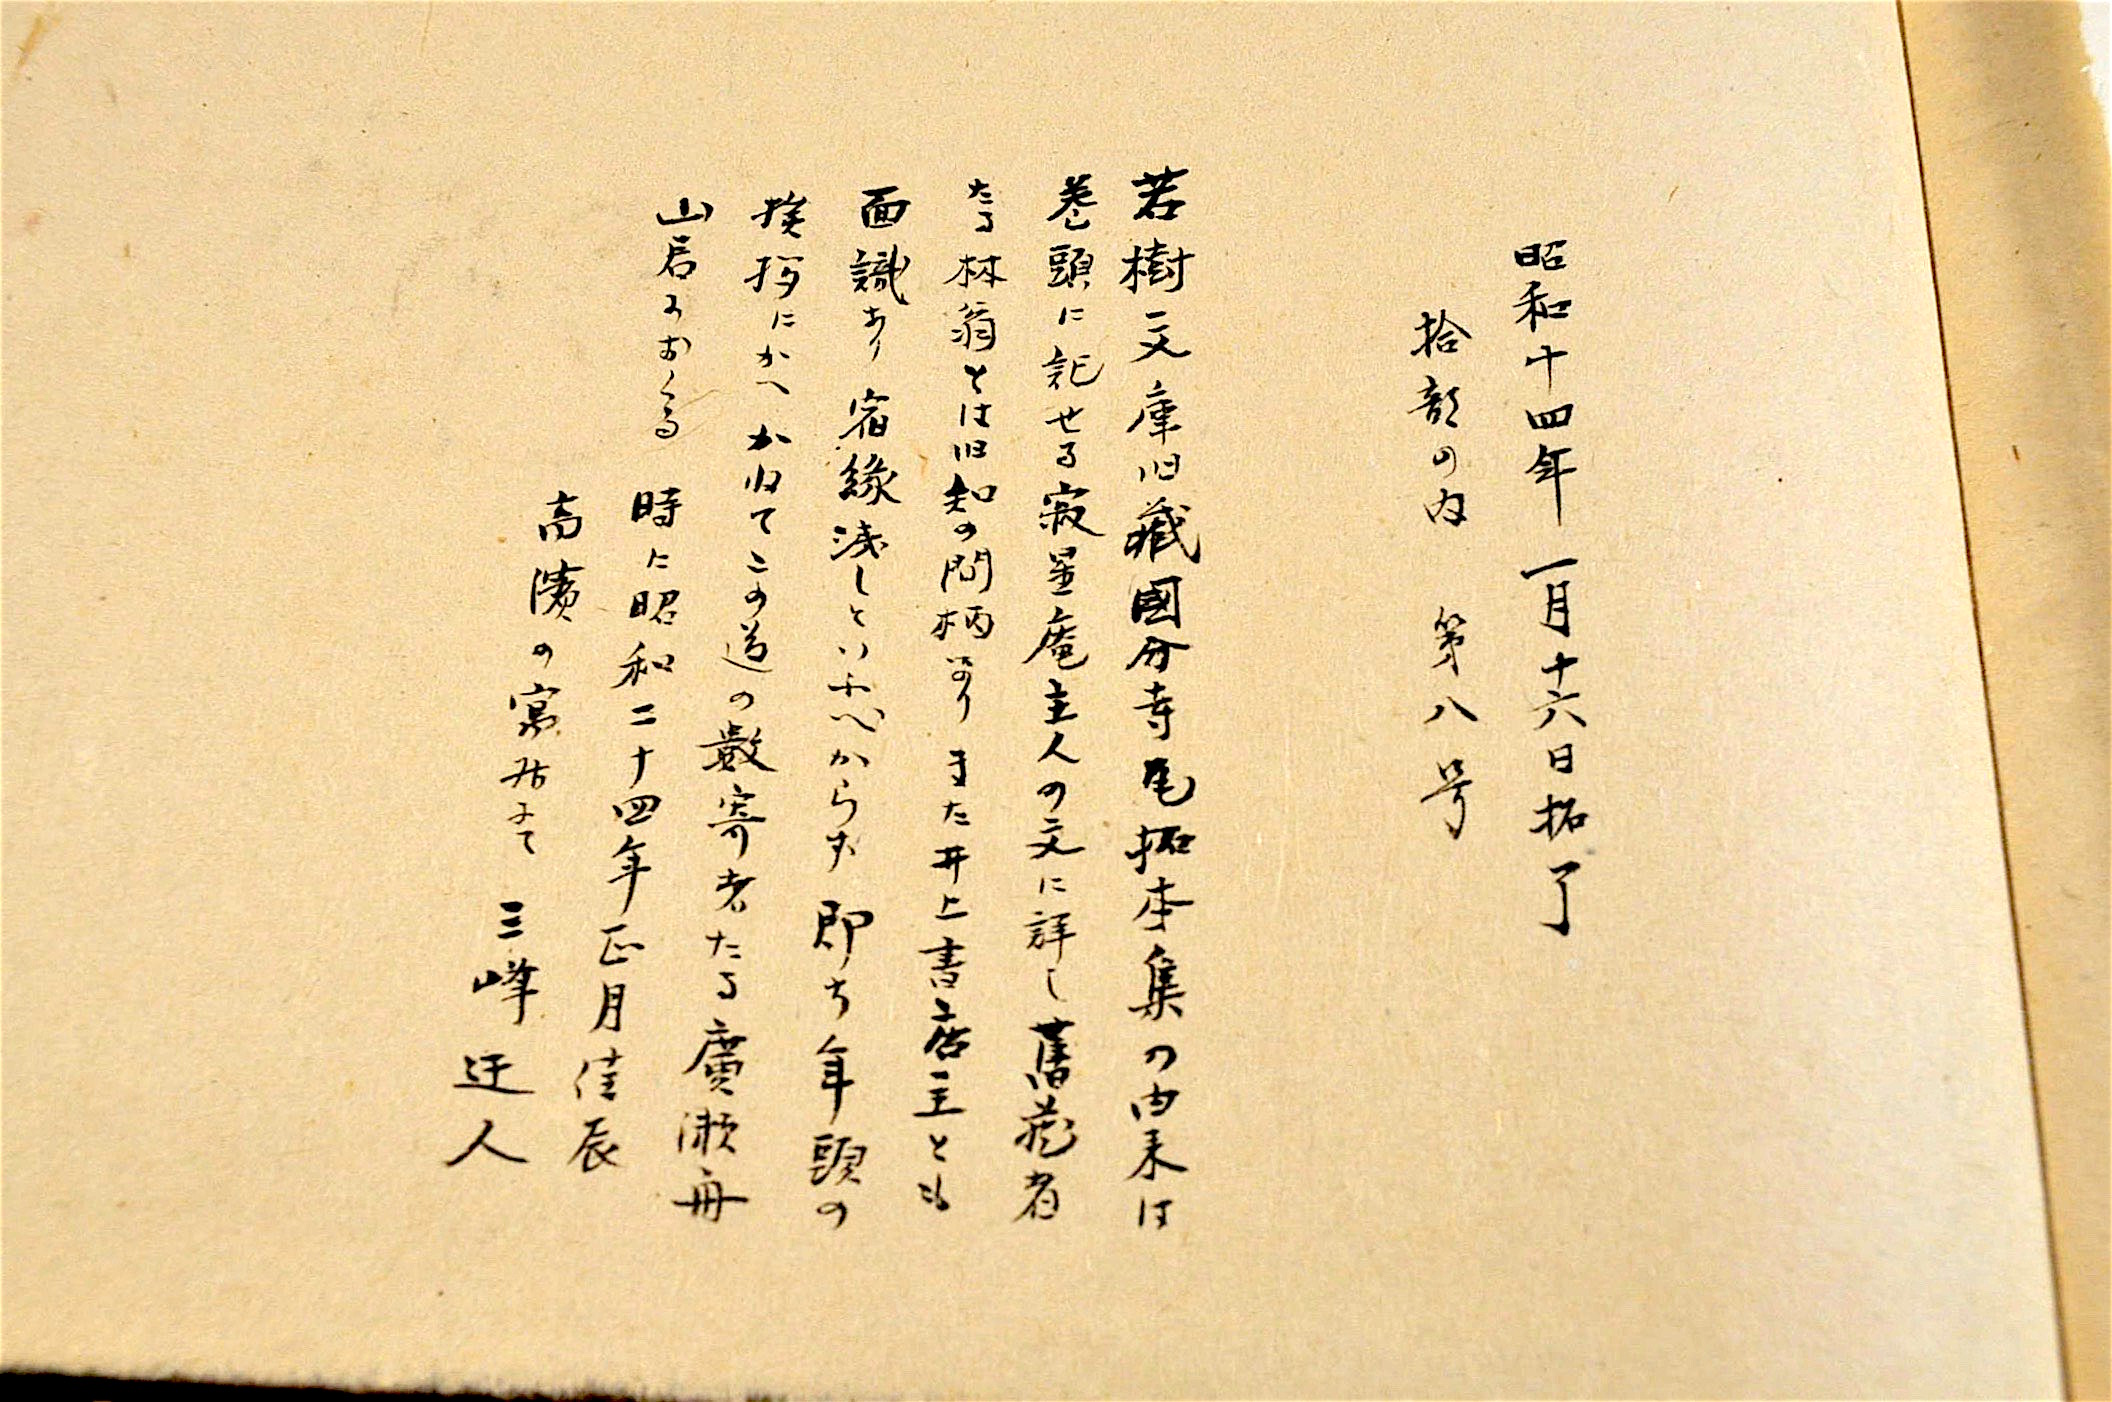 昭和十四年一月十六日拓了
拾部の内 第八号
若樹文庫旧藏國分寺瓦拓本集の由来は
巻頭に記せる寂星庵主人の文に詳し舊蔵者
たる林翁とは旧知の間柄なりまた井上書店主とも
面識あり宿緣浅しといふべからず即ち年頭の
挨拶にかへかねてこの道の數寄者たる廣瀬舟
山君におくる 時に昭和二十四年正月佳辰
高濱の寓居にて 三峰迂人